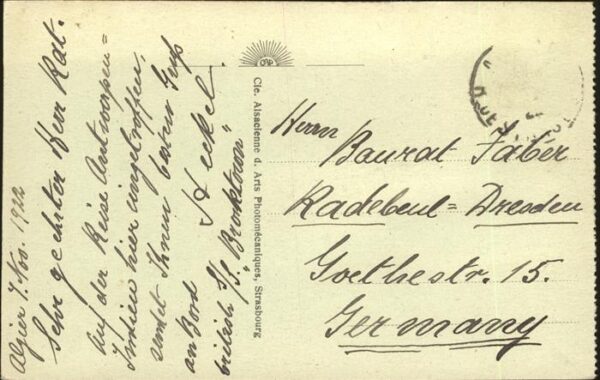 Algier 7. Nov. 1922
Sehr geehrter Herr Rat.
auf der Reise Antwerpen=
Indien hier eingetroffen,
sendet Ihnen besten Gruß
A Eckel
an Bord
british S/S "Brocktown"
Cie. Alsacienne d. Arts Photomécaniques, Strasbourg
Herrn
Baurat Faber
Radebeul=Dresden
Goethestr. 15.
Germany